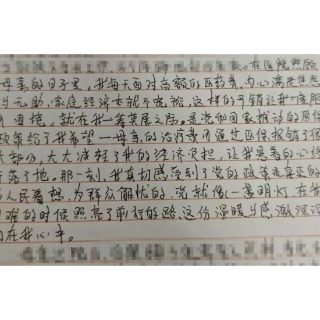 。在医院照顾
母亲的日子里，我每天面对高额的医药费，内心满是焦虑
与无助，家庭经济也就不宽裕，这样的开销让我一度陷
入困境。就在我一筹莫展之际，是党和国家推动的医保
政策给了我希望——母亲的治疗费用通过医保报销了很
大部分，大大减轻了我的经济负担，让我悬着的心终
落了地。那一刻，我真切感受到了党的政策是真正的
为人民着想，为群众解忧的，党就像一盏明灯，在我
困难的时候照亮了前行的路，这份温暖与感激深深
在我心中。